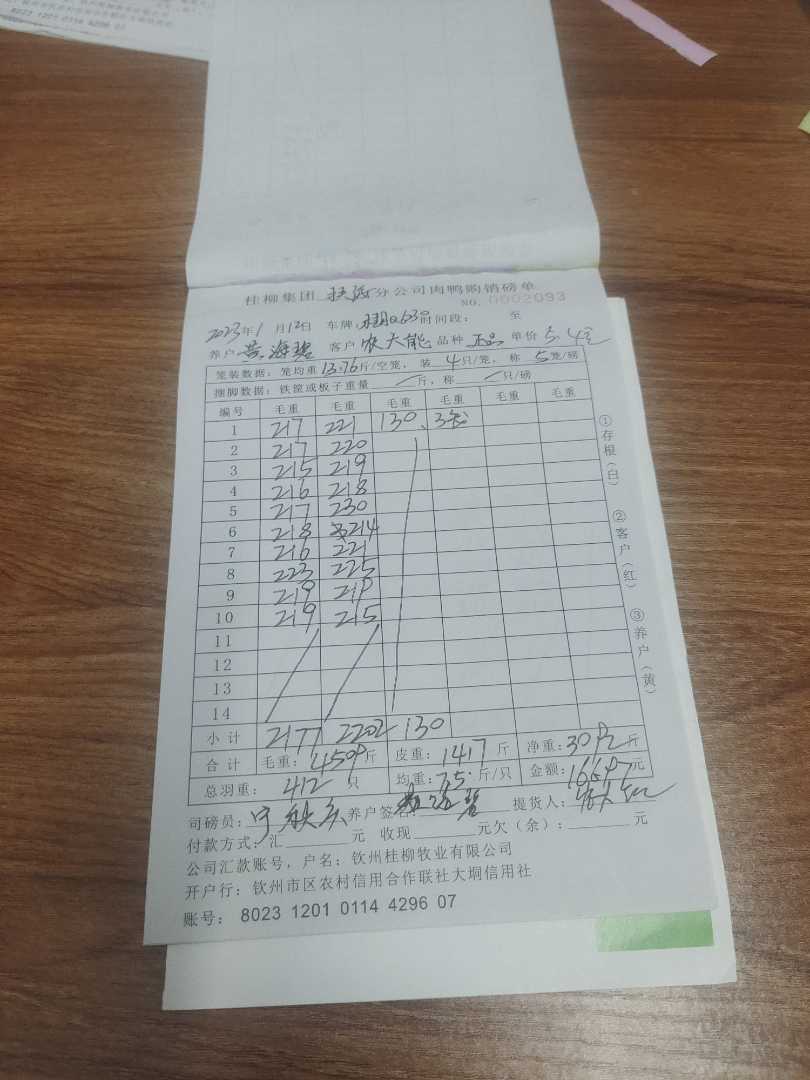 8023 1201 0114 4296 07
桂柳集团 扶绥 分公司肉鸭购销磅单
NO. 0002093
2023年1月12日 车牌: 时间段: 至
养户 黄海碧 客户 农大能 品种 正品 单价 5.4元
笼装数据: 笼均重 13.76斤/空笼, 装 4只/笼, 称 5笼/磅
捆脚数据: 铁筐或板子重量 斤, 称 只/磅
编号 毛重 毛重 毛重 毛重 毛重 毛重
1 217 221 130
2 217 220
3 215 219
4 216 218
5 217 230
6 218 214
7 216 221
8 223 225
9 219 219
10 219 215
11
12
13
14
小计 2177 2202 130
合计 毛重: 4509斤 皮重: 1417斤 净重: 3092斤
总羽重: 412 只 均重: 7.5斤/只 金额: 16697元
司磅员: 养户签名: 提货人:
付款方式: 汇 元 收现 元欠(余): 元
公司汇款账号, 户名: 钦州桂柳牧业有限公司
开户行: 钦州市区农村信用合作联社大垌信用社
账号: 8023 1201 0114 4296 07
①存根(白)
②客户(红)
③养户(黄)